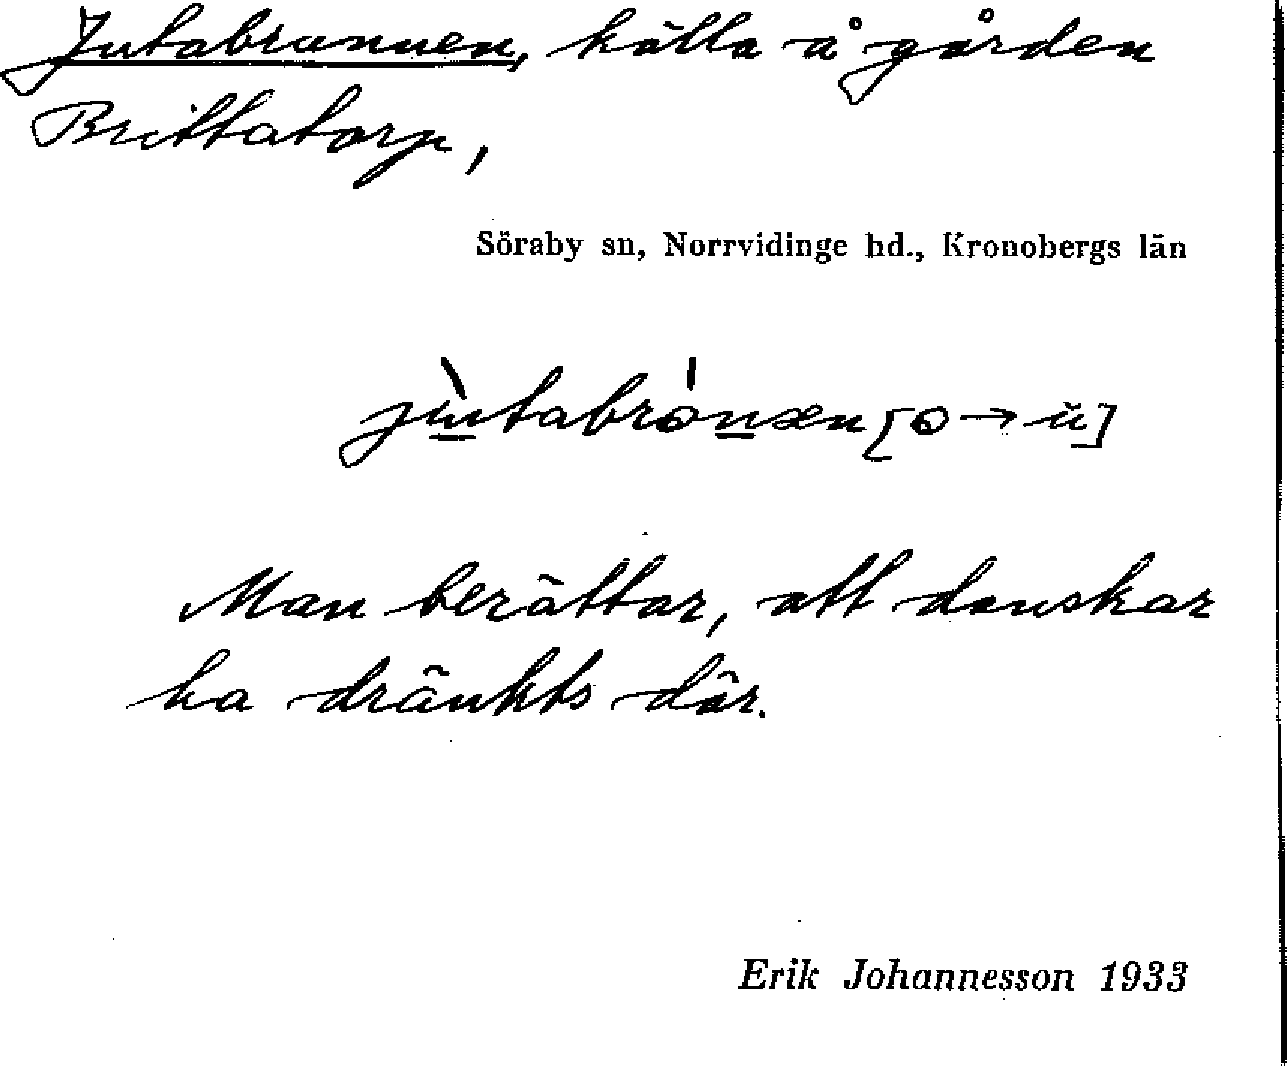 Jutabrunnen, källa å gården
Brittatorp,
Söraby sn, Norrvidinge hd., Kronobergs län
jùtabrónæn [o → ŭ]
Man berättar, att danskar
ha dränkts där.
Erik Johannesson 1933